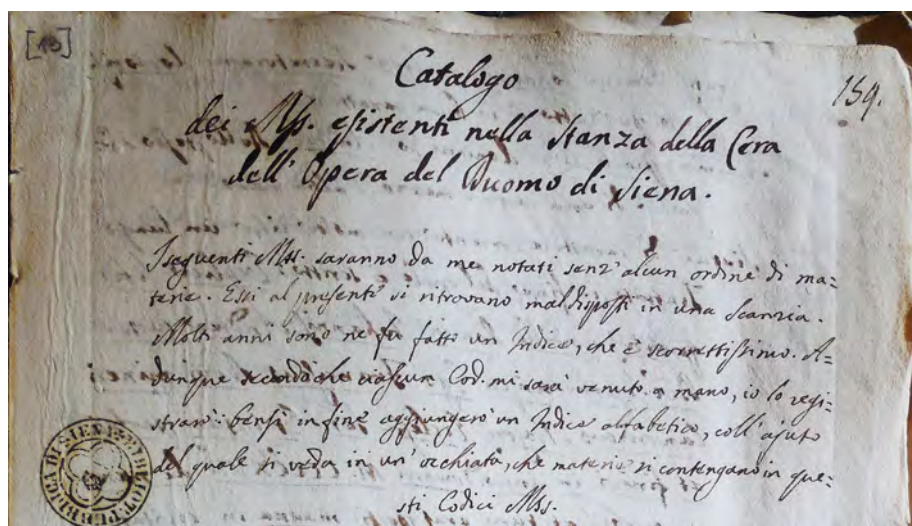 [10]
Catalogo
159.
dei Mss. esistenti nella Stanza della Cera
dell' Opera del Duomo di Siena.
I seguenti Mss. saranno da me notati senz' alcun ordine di ma=
terie. Essi al presente si ritrovano mal disposti in una Scanzia.
Molti anni sono ne fu fatto un Indice, che è scorrettissimo. A=
dunque secondoche ciascun Cod. mi sarà venuto a mano, io lo regi=
strarò: bensì in fine aggiungerò un Indice alfabetico, coll' ajuto
del quale si veda in un' occhiata, che materie si contengano in que=
sti Codici Mss.